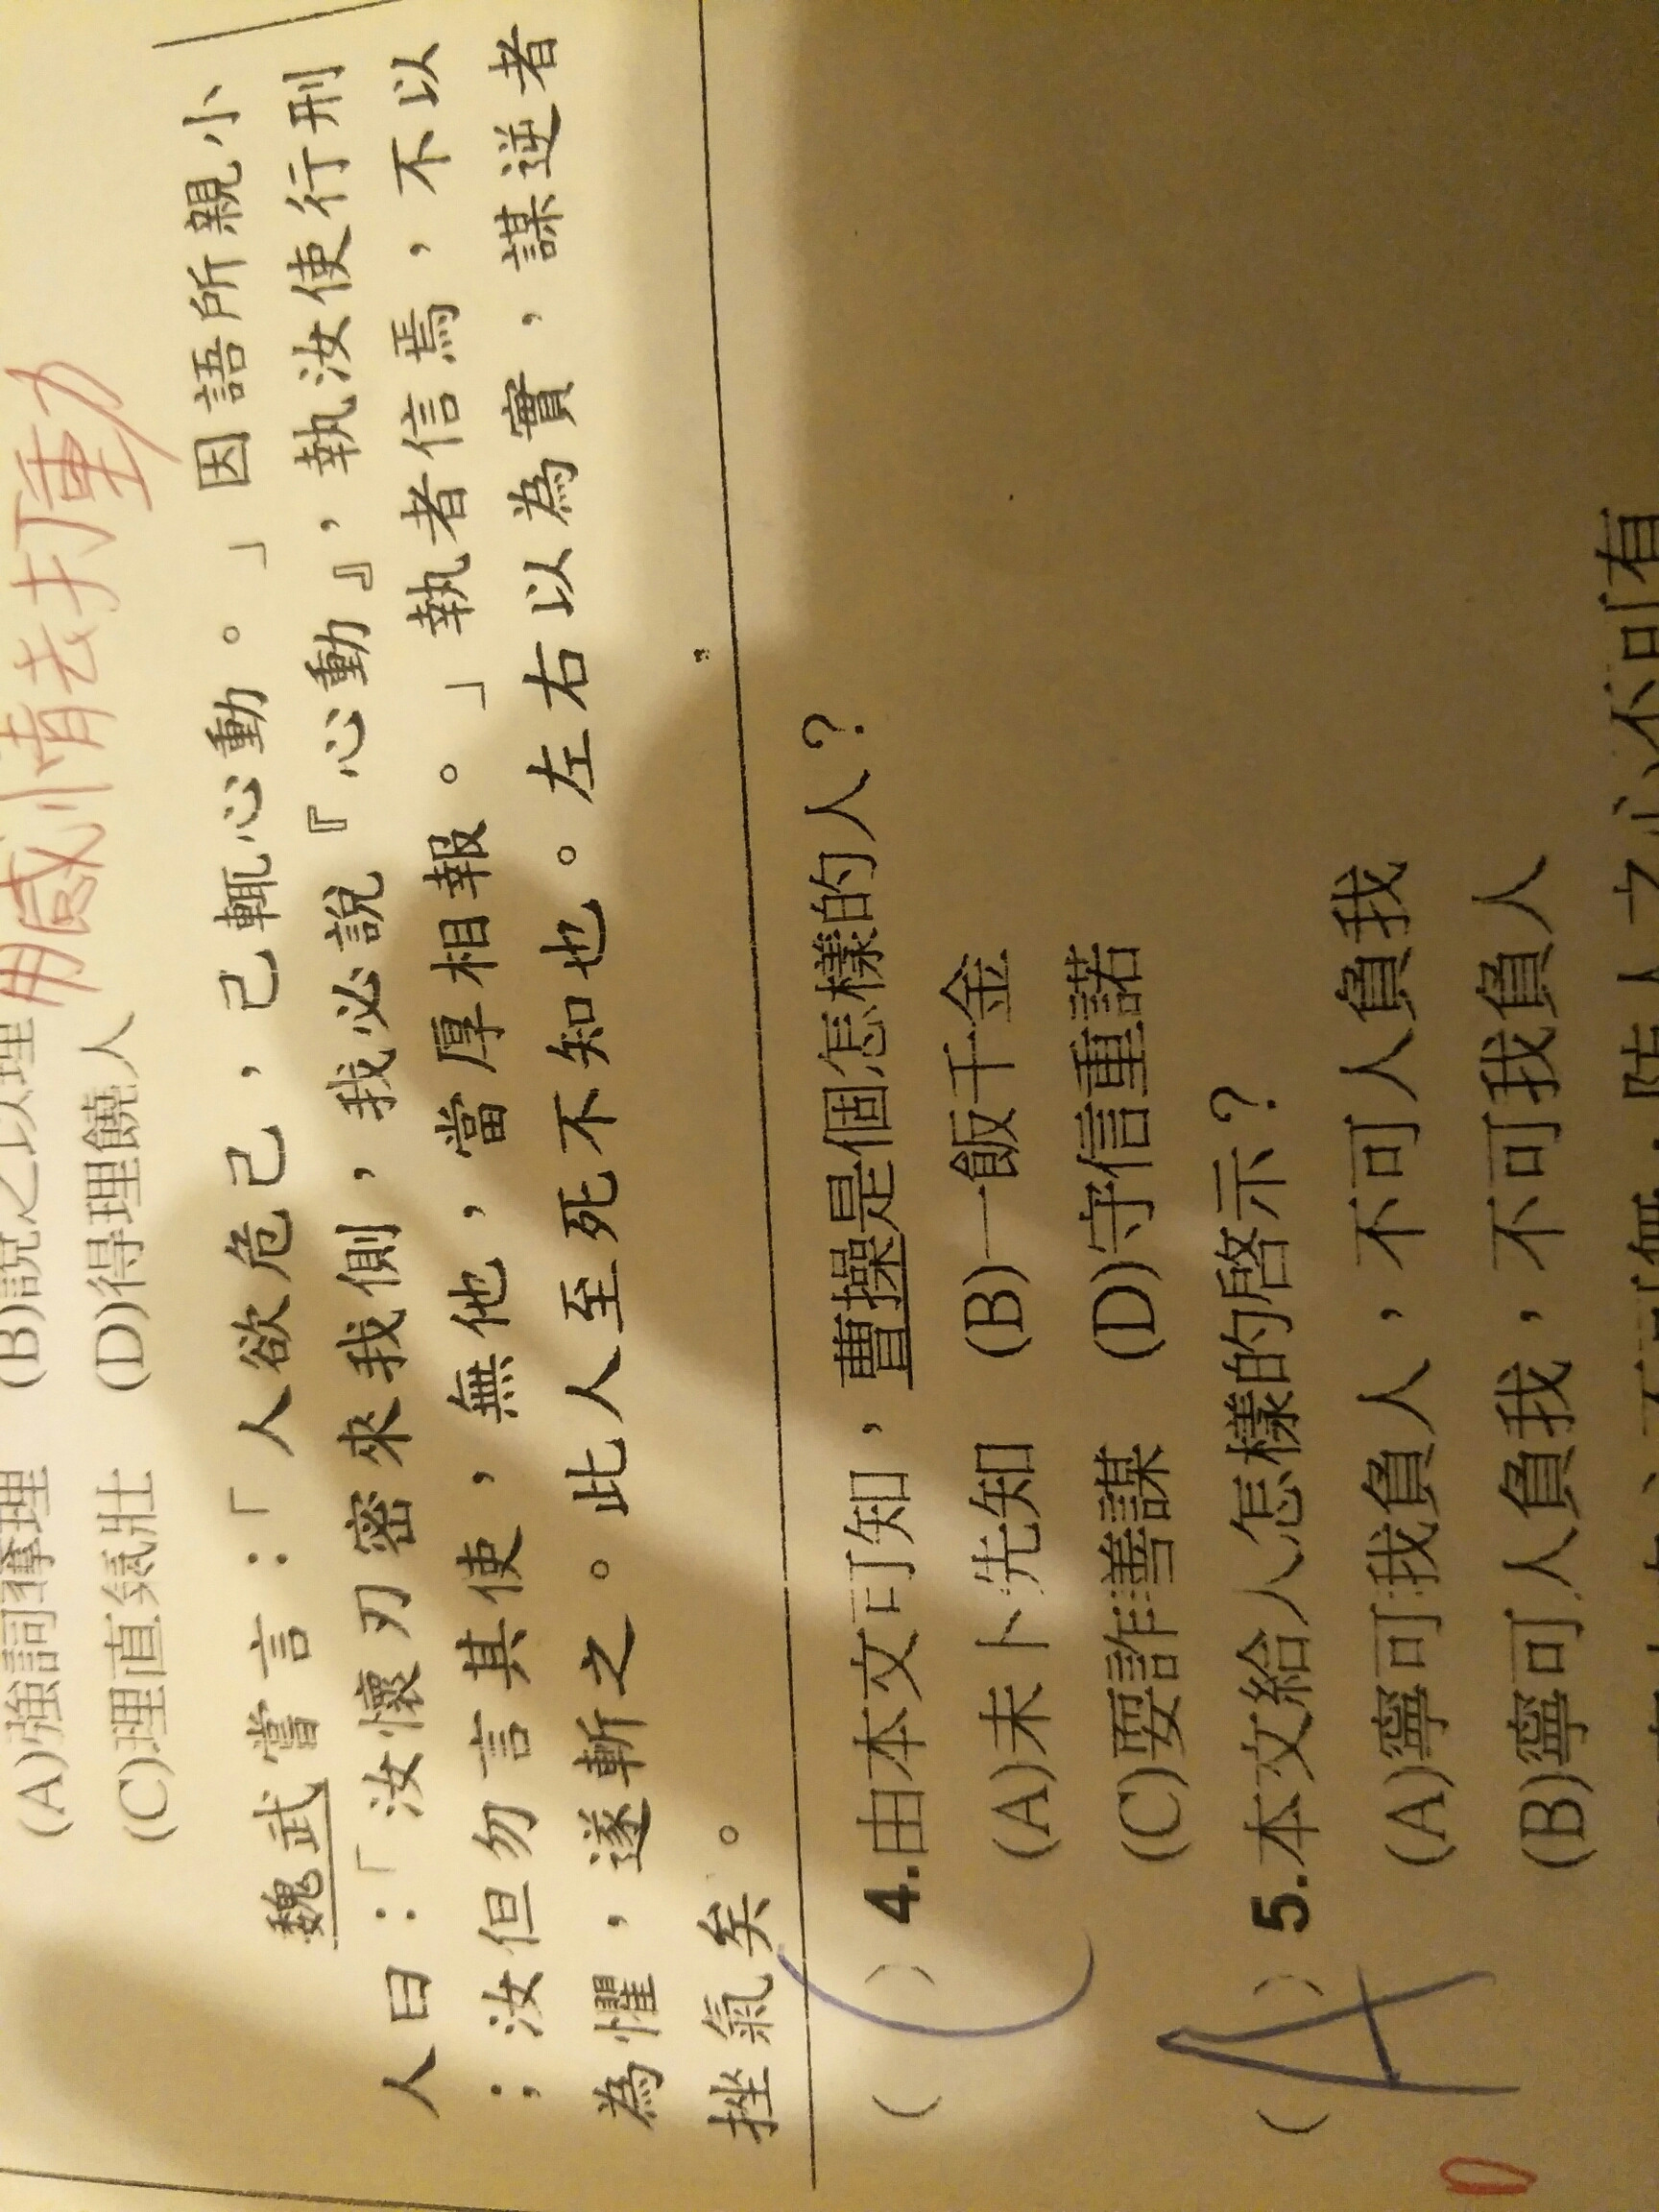 用感情去打動
(A)強詞奪理 (B)說之以理
(C)理直氣壯 (D)得理饒人
魏武嘗言：「人欲危己，己輒心動。」因語所親小
人曰：「汝懷刃密來我側，我必說『心動』，執汝使行刑
；汝但勿言其使，無他，當厚相報。」執者信焉，不以
為懼，遂斬之。此人至死不知也。左右以為實，謀逆者
挫氣矣。
( C )4.由本文可知，曹操是個怎樣的人？
(A)未卜先知 (B)一飯千金
(C)耍詐善謀 (D)守信重諾
( A )5.本文給人怎樣的啓示？
(A)寧可我負人，不可人負我
(B)寧可人負我，不可我負人
防人之心不可有